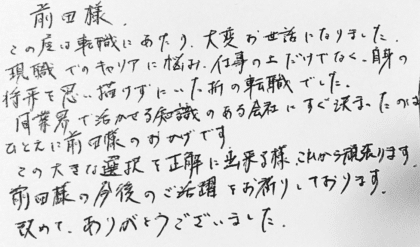 前田様、
この度は転職にあたり、大変お世話になりました。
現職でのキャリアに悩み、仕事の上だけでなく、自身の
将来を思い描けずにいた折の転職でした。
同業界で活かせる知識のある会社にすぐ決まったのは
ひとえに前田様のおかげです
この大きな選択を正解に出来る様、これから頑張ります。
前田様の今後のご活躍をお祈りしております。
改めて、ありがとうございました。